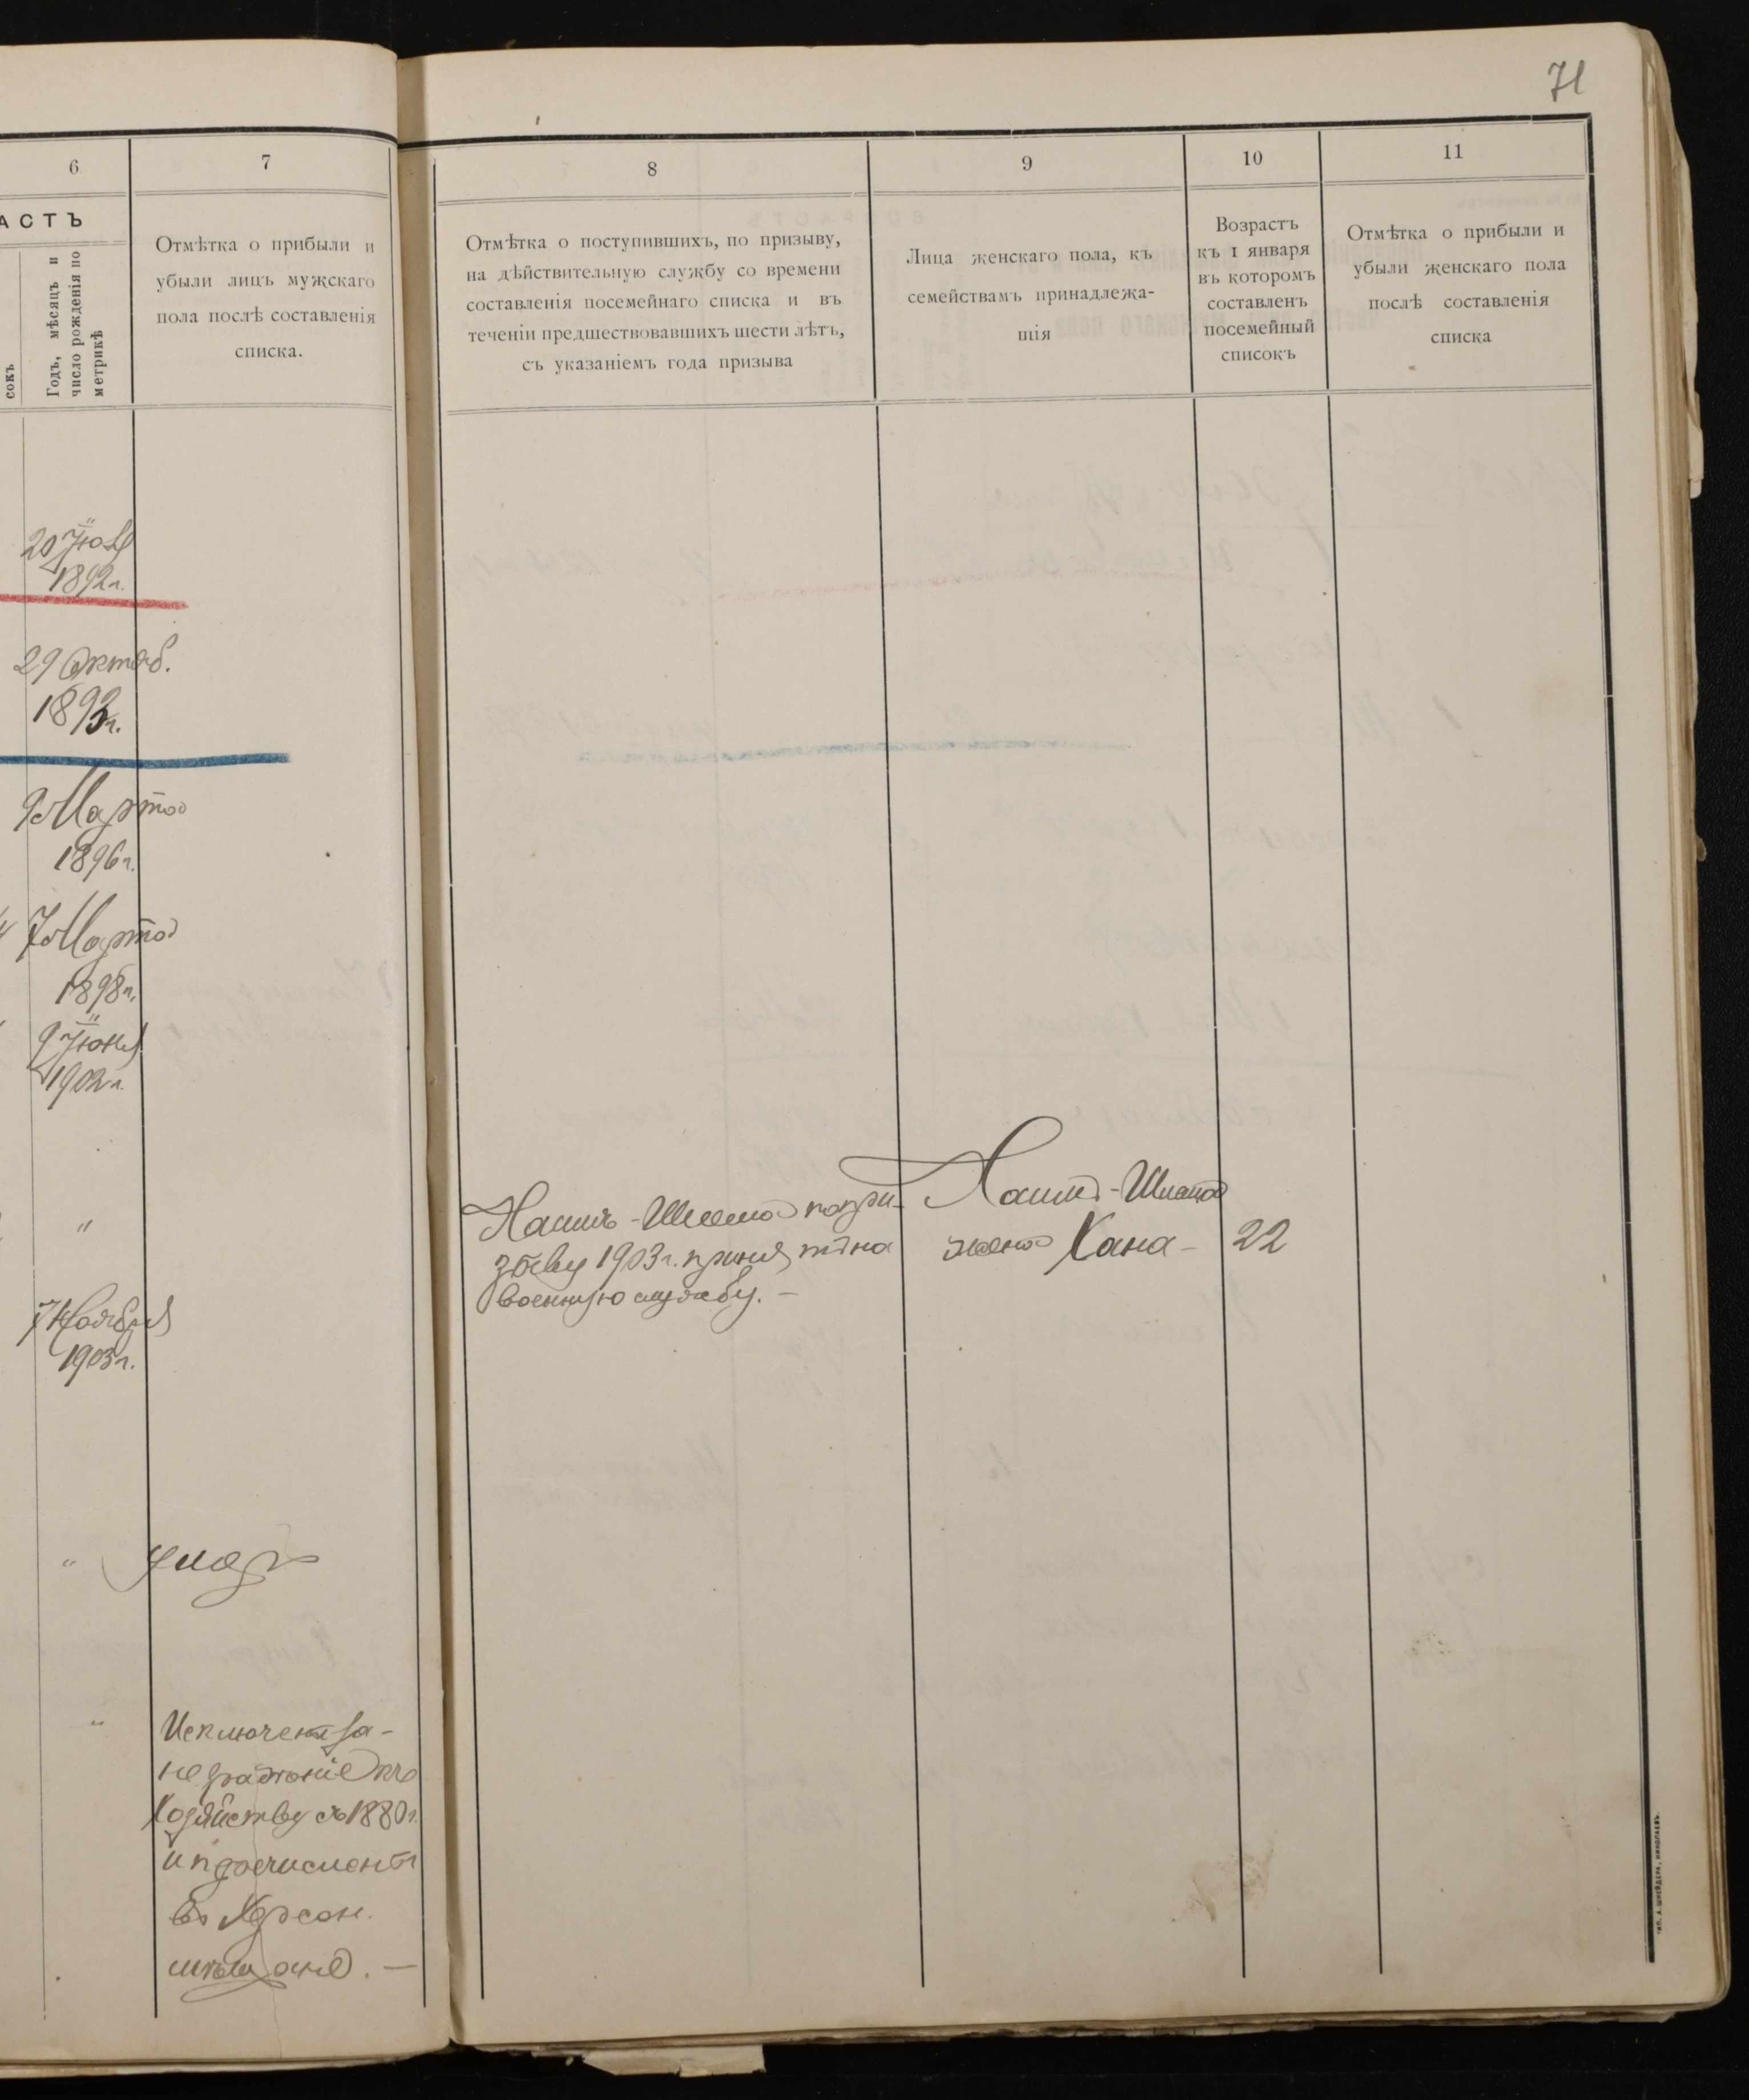 71
6
7
8
9
10
11
АСТЪ
сокъ
Годъ, мѣсяцъ и
число рожденія по
метрикѣ
Отмѣтка о прибыли и
убыли лицъ мужскаго
пола послѣ составленія
списка.
Отмѣтка о поступившихъ, по призыву,
на дѣйствительную службу со времени
составленія посемейнаго списка и въ
теченіи предшествовавшихъ шести лѣтъ,
съ указаніемъ года призыва
Лица женскаго пола, къ
семействамъ принадлежа-
щія
Возрастъ
къ 1 января
въ которомъ
составленъ
посемейный
списокъ
Отмѣтка о прибыли и
убыли женскаго пола
послѣ составленія
списка
20
1892 г.
29 Октяб.
1893 г.
9 Марта
1896 г.
7 Марта
1898 г.
9 Іюня
1902 г.
"
7 Ноября
1903 г.
" умер
"
Исключенъ за-
нераденіе къ
Хозяйству съ 1880 г.
и прочисленъ
въ Херсон.
мѣщане. —
по при-
зыву 1903 г. принятъ на
военную службу. —
жена Хана - 22
ТИП. А. ШНЕЙДЕРА, НИКОЛАЕВЪ.